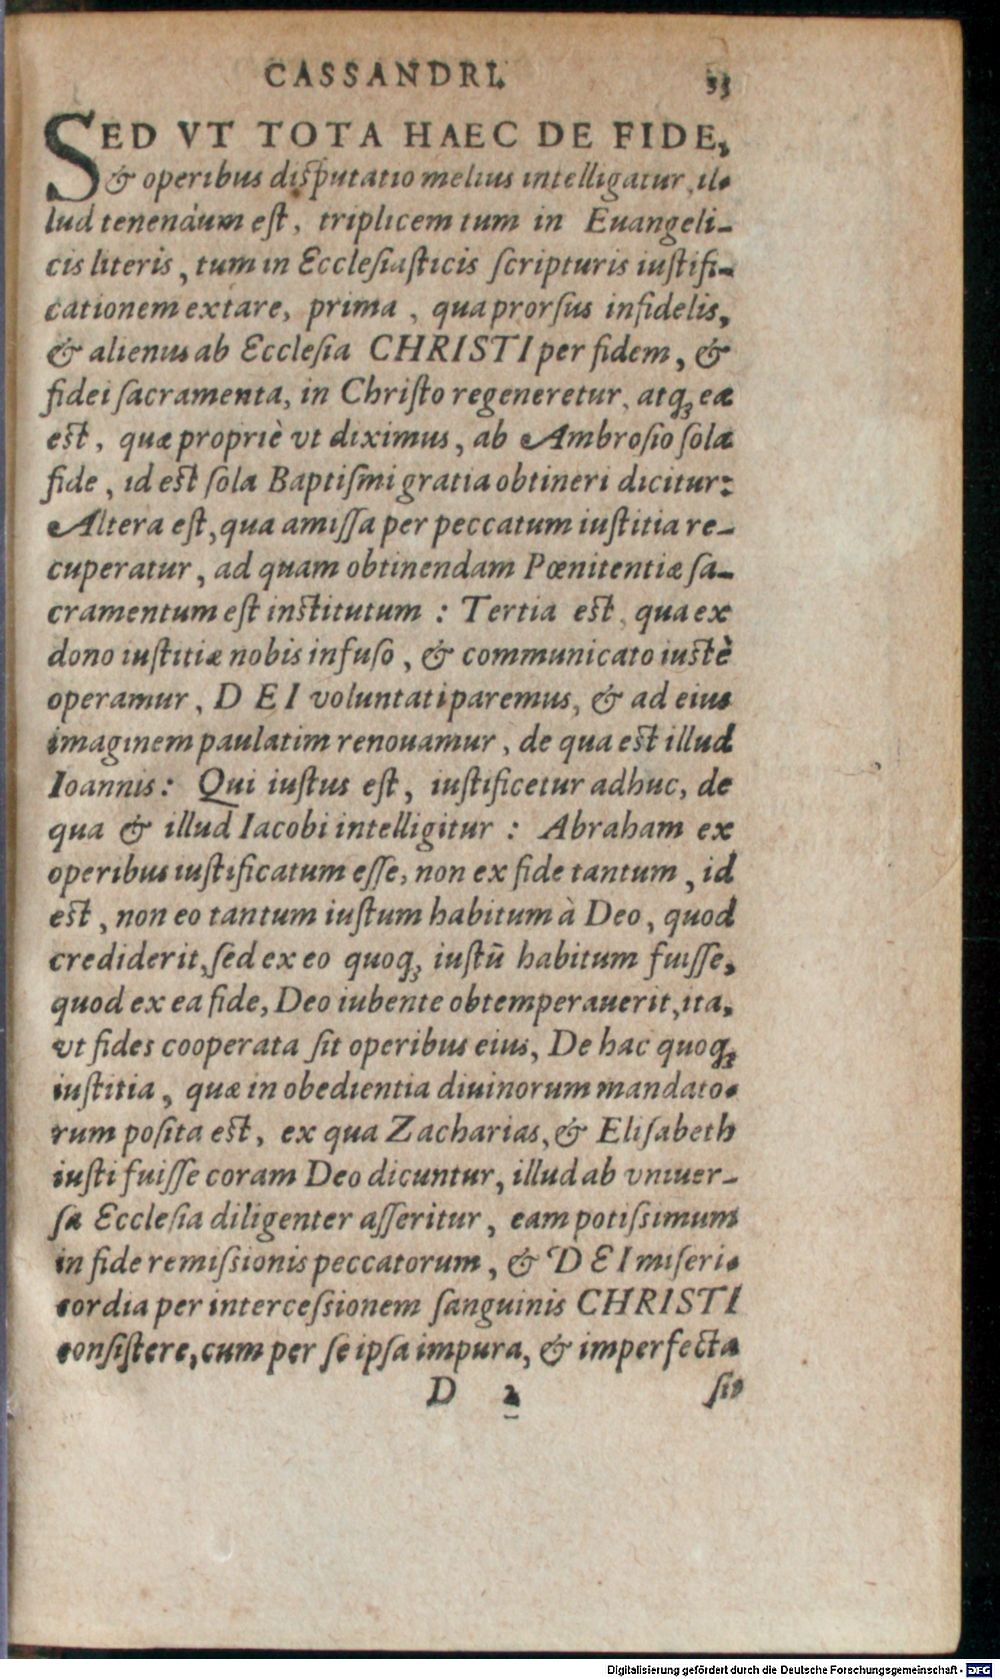 CASSANDRI. 53
SED VT TOTA HAEC DE FIDE,
& operibus disputatio melius intelligatur, il-
lud tenendum est, triplicem tum in Euangeli-
cis literis, tum in Ecclesiasticis scripturis iustifi-
cationem extare, prima, qua prorsus infidelis,
& alienus ab Ecclesia CHRISTI per fidem, &
fidei sacramenta, in Christo regeneretur, atq; ea
est, quæ propriè vt diximus, ab Ambrosio sola
fide, id est sola Baptismi gratia obtineri dicitur:
Altera est, qua amissa per peccatum iustitia re-
cuperatur, ad quam obtinendam Pœnitentiæ sa-
cramentum est institutum : Tertia est, qua ex
dono iustitiæ nobis infuso, & communicato iustè
operamur, DEI voluntati paremus, & ad eius
imaginem paulatim renouamur, de qua est illud
Ioannis: Qui iustus est, iustificetur adhuc, de
qua & illud Iacobi intelligitur : Abraham ex
operibus iustificatum esse, non ex fide tantum, id
est, non eo tantum iustum habitum à Deo, quod
crediderit, sed ex eo quoq; iustū habitum fuisse,
quod ex ea fide, Deo iubente obtemperauerit, ita,
vt fides cooperata sit operibus eius, De hac quoq;
iustitia, quæ in obedientia diuinorum mandato-
rum posita est, ex qua Zacharias, & Elisabeth
iusti fuisse coram Deo dicuntur, illud ab vniuer-
sa Ecclesia diligenter asseritur, eam potissimum
in fide remissionis peccatorum, & DEI miseri-
cordia per intercessionem sanguinis CHRISTI
consistere, cum per se ipsa impura, & imperfecta
D 2 sit
Digitalisierung gefördert durch die Deutsche Forschungsgemeinschaft - DFG